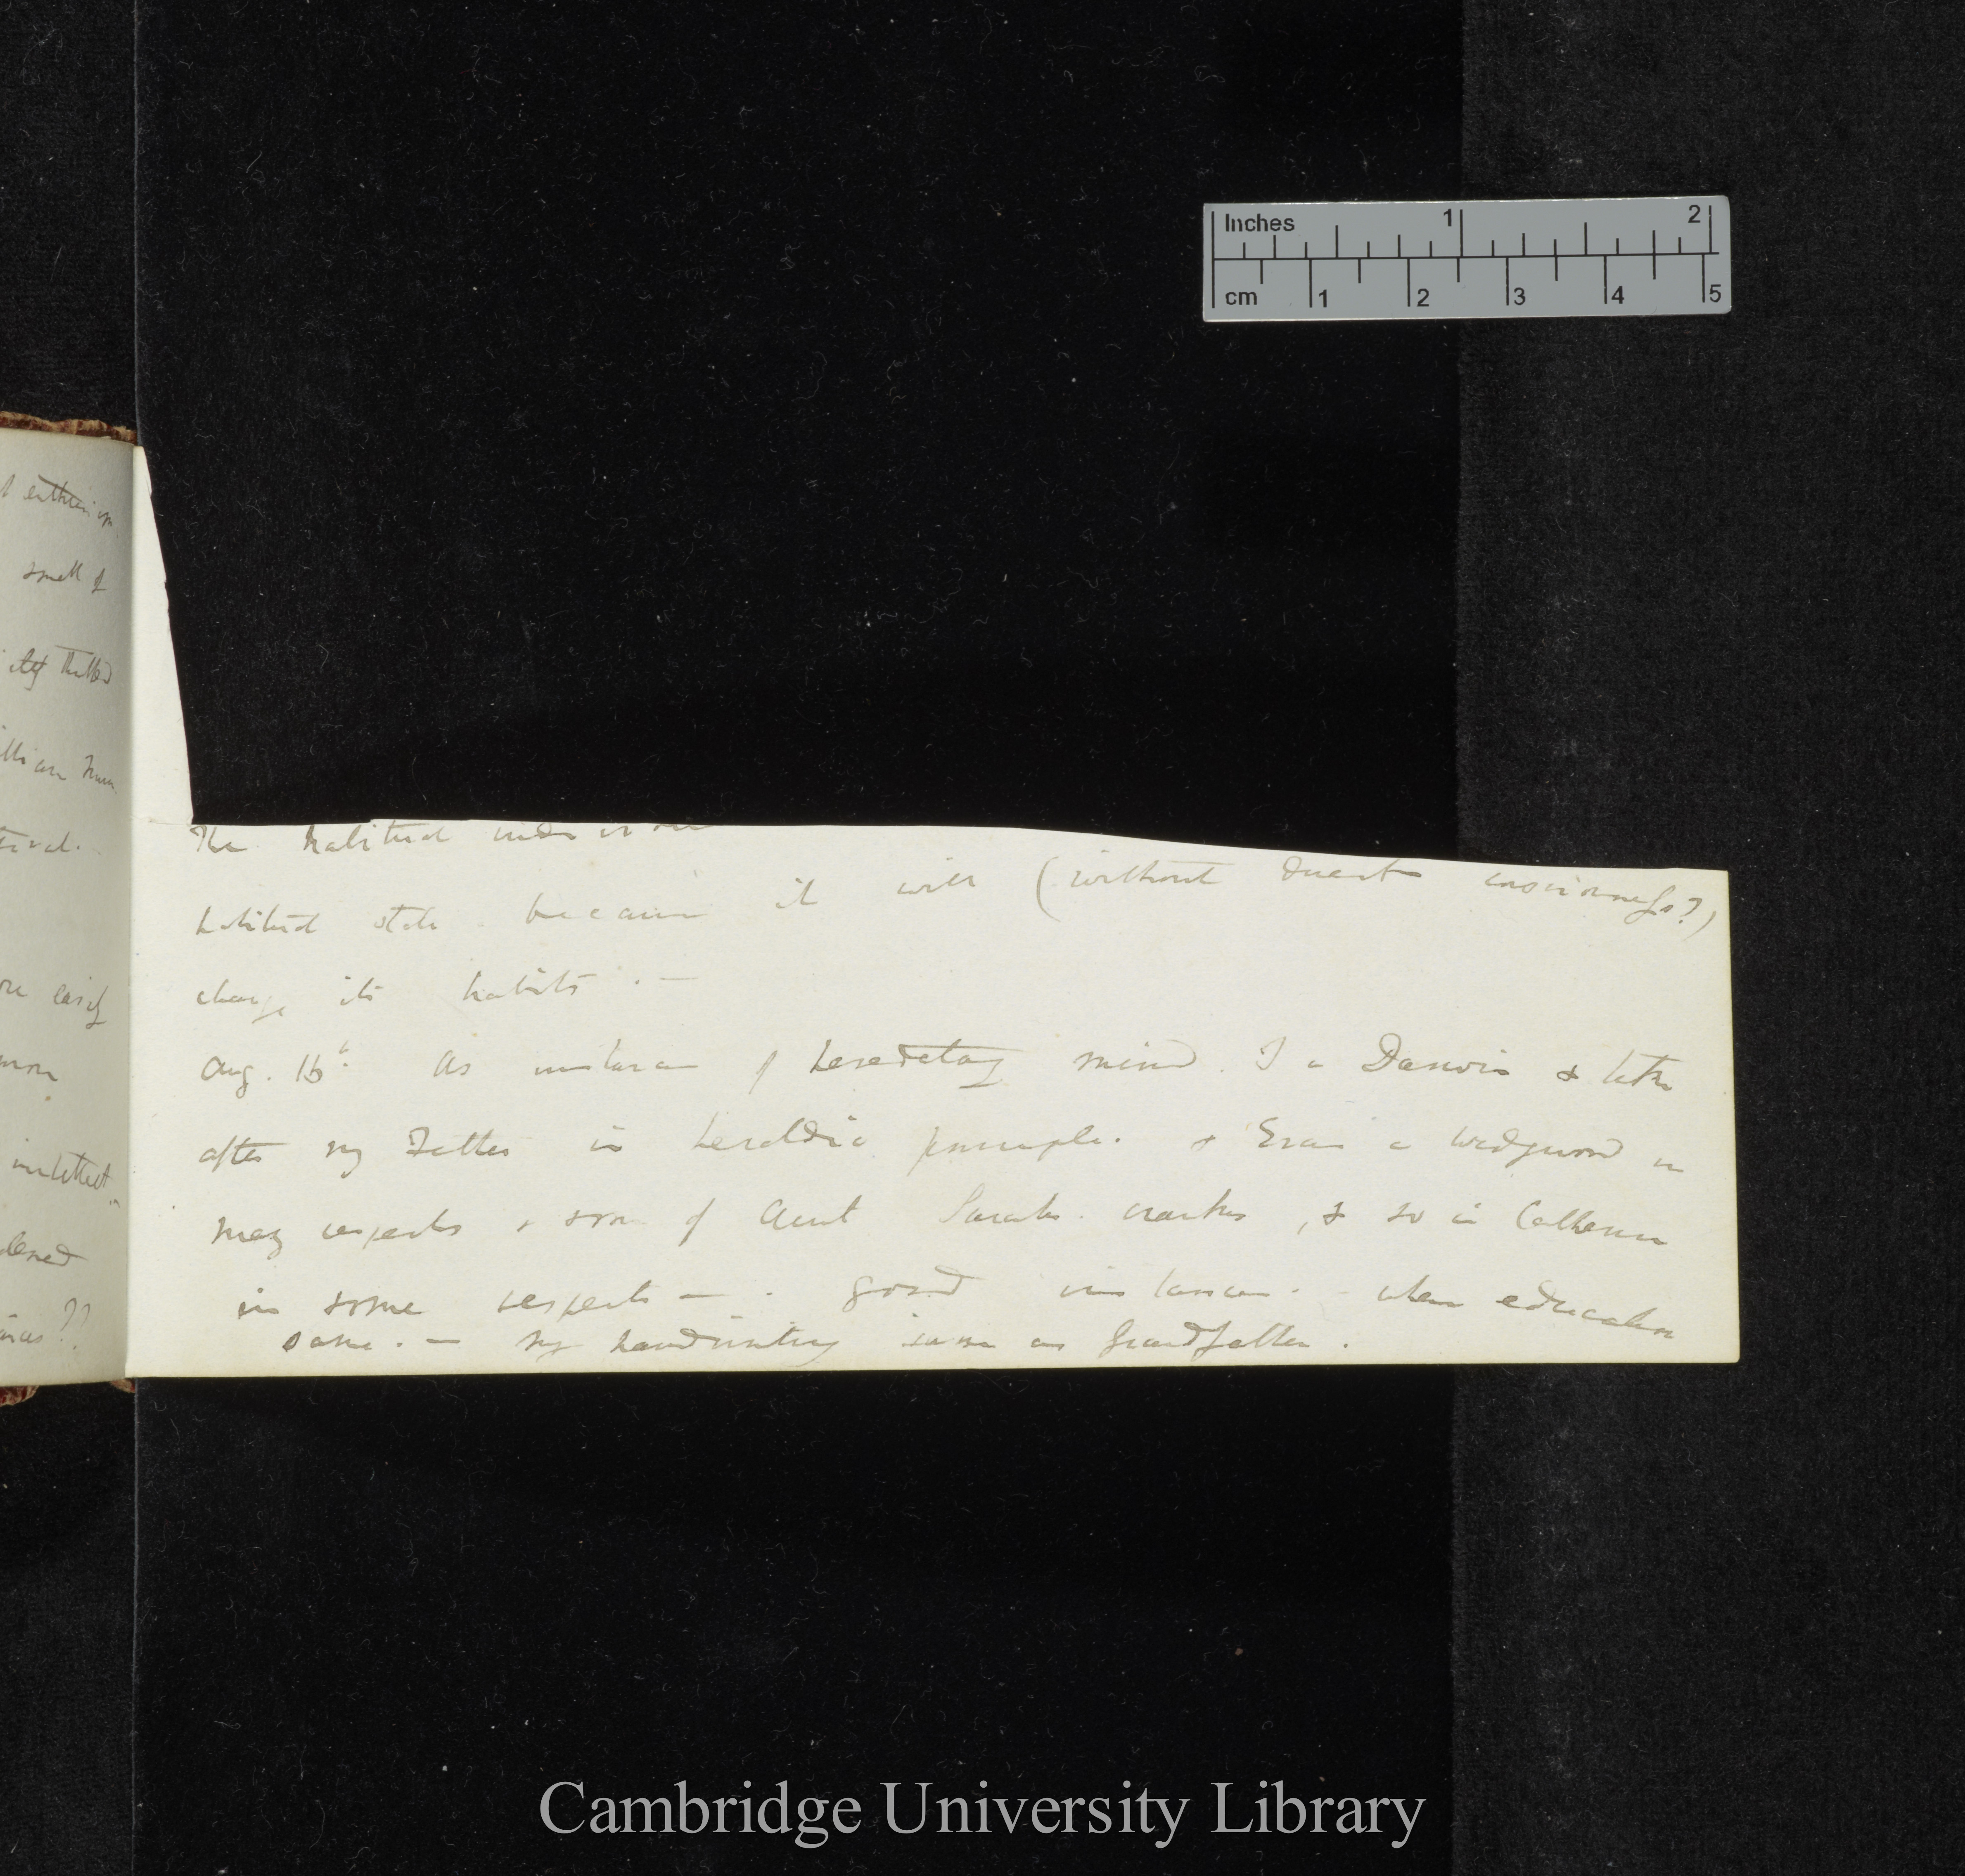 Inches 1 2
cm 1 2 3 4 5
smell of
easily
intellect
??
The habitual individual
habitual state because it will (without direct consciousness?)
change its habits. —
Aug. 16th. As instance of hereditary mind. I a Darwin & take
after my Father in heraldic principle. & Eras a Wedgwood in
many respects & some of Aunt Sarahs. crankes, & so is Catherine
in some respects — . good instances. when education
same. — My handwriting same as Grandfather.
Cambridge University Library